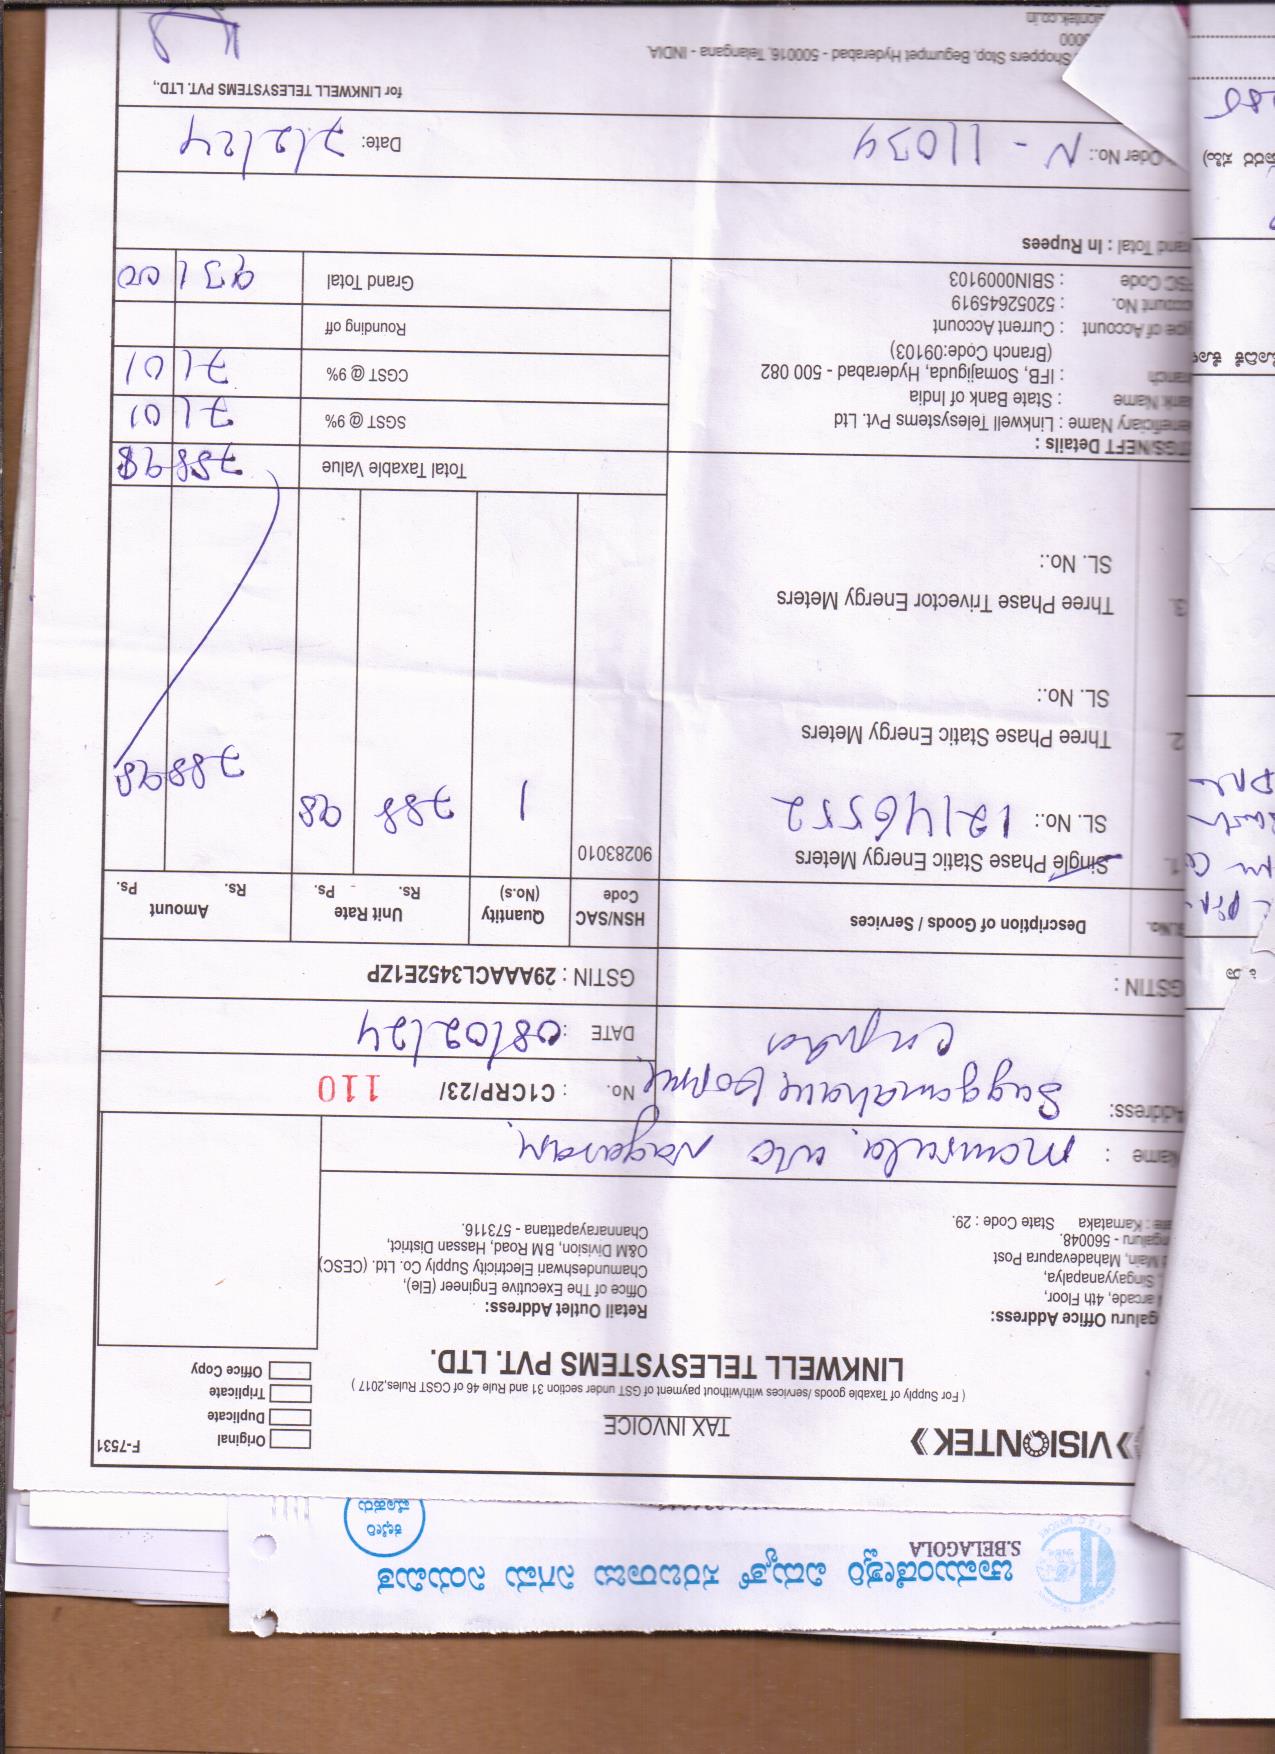 ಚಾಮುಂಡೇಶ್ವರಿ ವಿದ್ಯುತ್ ಸರಬರಾಜು ನಿಗಮ ನಿಯಮಿತ
S.BELAGOLA
VISIONTEK
TAX INVOICE
F-7531
Original
Duplicate
Triplicate
Office Copy
( For Supply of Taxable goods /services with/without payment of GST under section 31 and Rule 46 of CGST Rules,2017 )
LINKWELL TELESYSTEMS PVT. LTD.
galuru Office Address:
arcade, 4th Floor,
Singayyanapalya,
Main, Mahadevapura Post
ngaluru - 560048.
ate : Karnataka State Code : 29.
Retail Outlet Address:
Office of The Executive Engineer (Ele),
Chamundeshwari Electricity Supply Co. Ltd. (CESC)
O&M Division, BM Road, Hassan District,
Channarayapattana - 573116.
Name : w/o Nagaraj
Address:
No. : C1CRP/23/ 110
DATE : 08/02/24
GSTIN :
GSTIN : 29AAACL3452E1ZP
Sl.No. Description of Goods / Services HSN/SAC Code Quantity (No.s) Unit Rate Rs. Ps. Amount Rs. Ps.
1. Single Phase Static Energy Meters 90283010
SL. No.: 12146552 1 788 98 788 98
2. Three Phase Static Energy Meters
SL. No.:
3. Three Phase Trivector Energy Meters
SL. No.:
Total Taxable Value 788 98
SGST @ 9% 71 01
CGST @ 9% 71 01
Rounding off
Grand Total 931 00
RTGS/NEFT Details :
Beneficiary Name : Linkwell Telesystems Pvt. Ltd
Bank Name : State Bank of India
Branch : IFB, Somajiguda, Hyderabad - 500 082
(Branch Code:09103)
Type of Account : Current Account
Account No. : 52052645919
IFSC Code : SBIN0009103
Grand Total : In Rupees
Oder No.: N - 11034
Date: 7/2/24
for LINKWELL TELESYSTEMS PVT. LTD.,
Shoppers Stop, Begumpet Hyderabad - 500016, Telangana - INDIA.